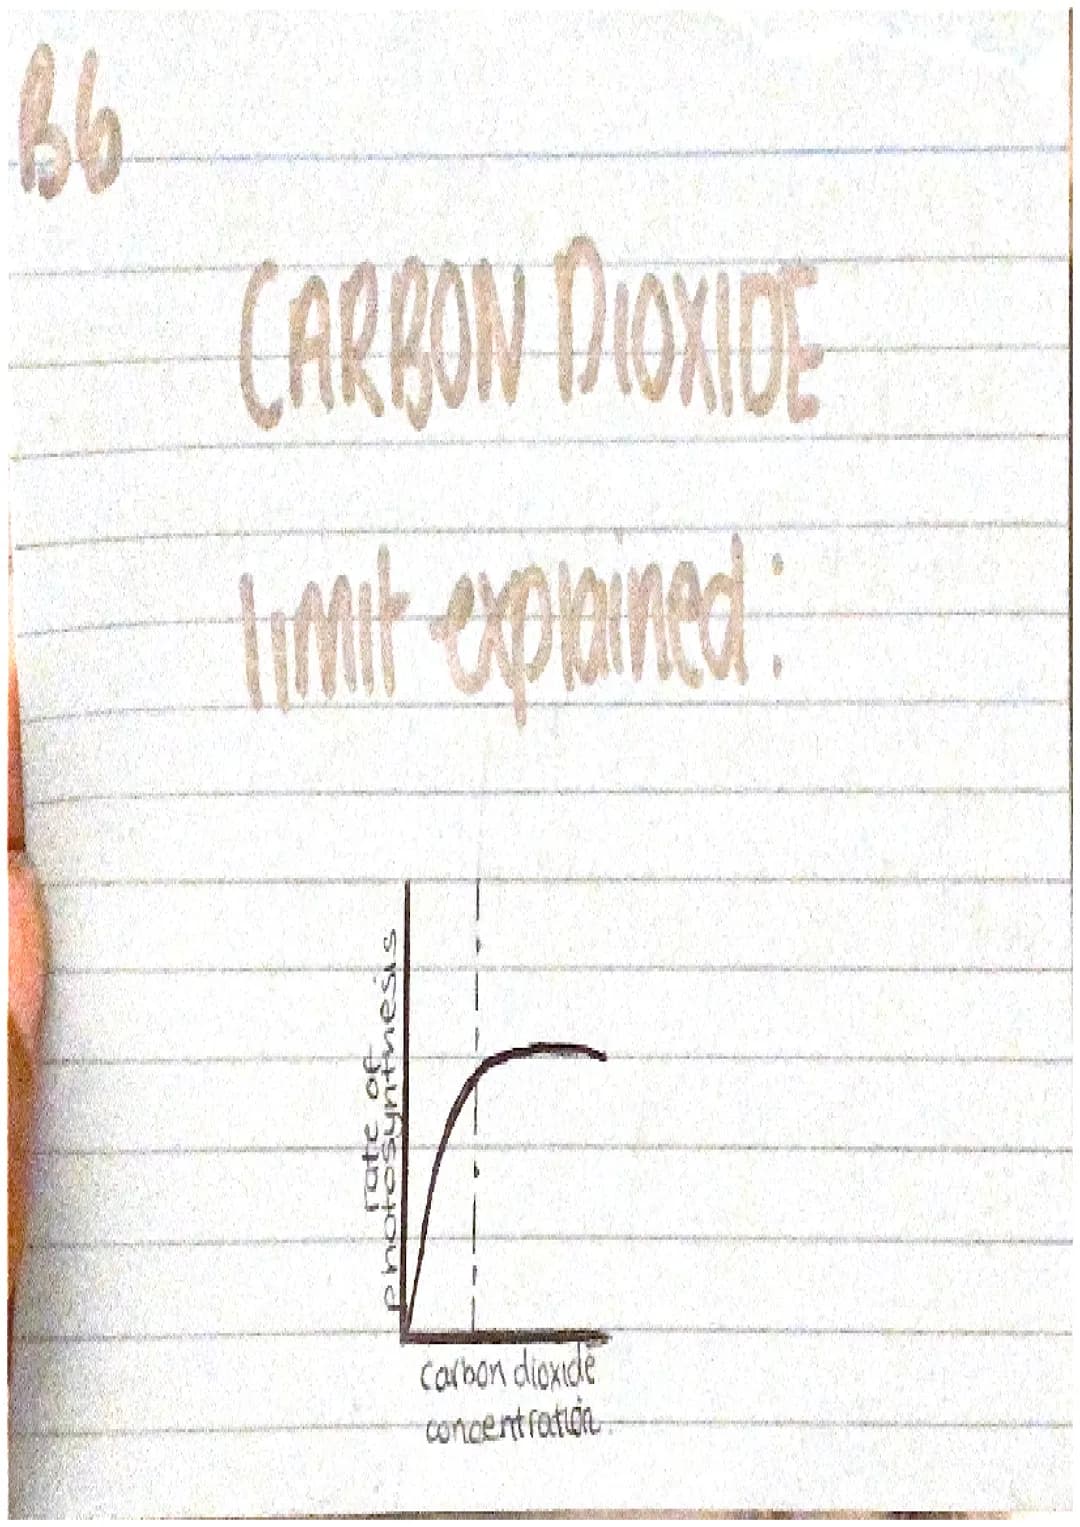 B6
CARBON DIOXIDE
limit explained:
rate of
photosynthesis
carbon dioxide
concentration.